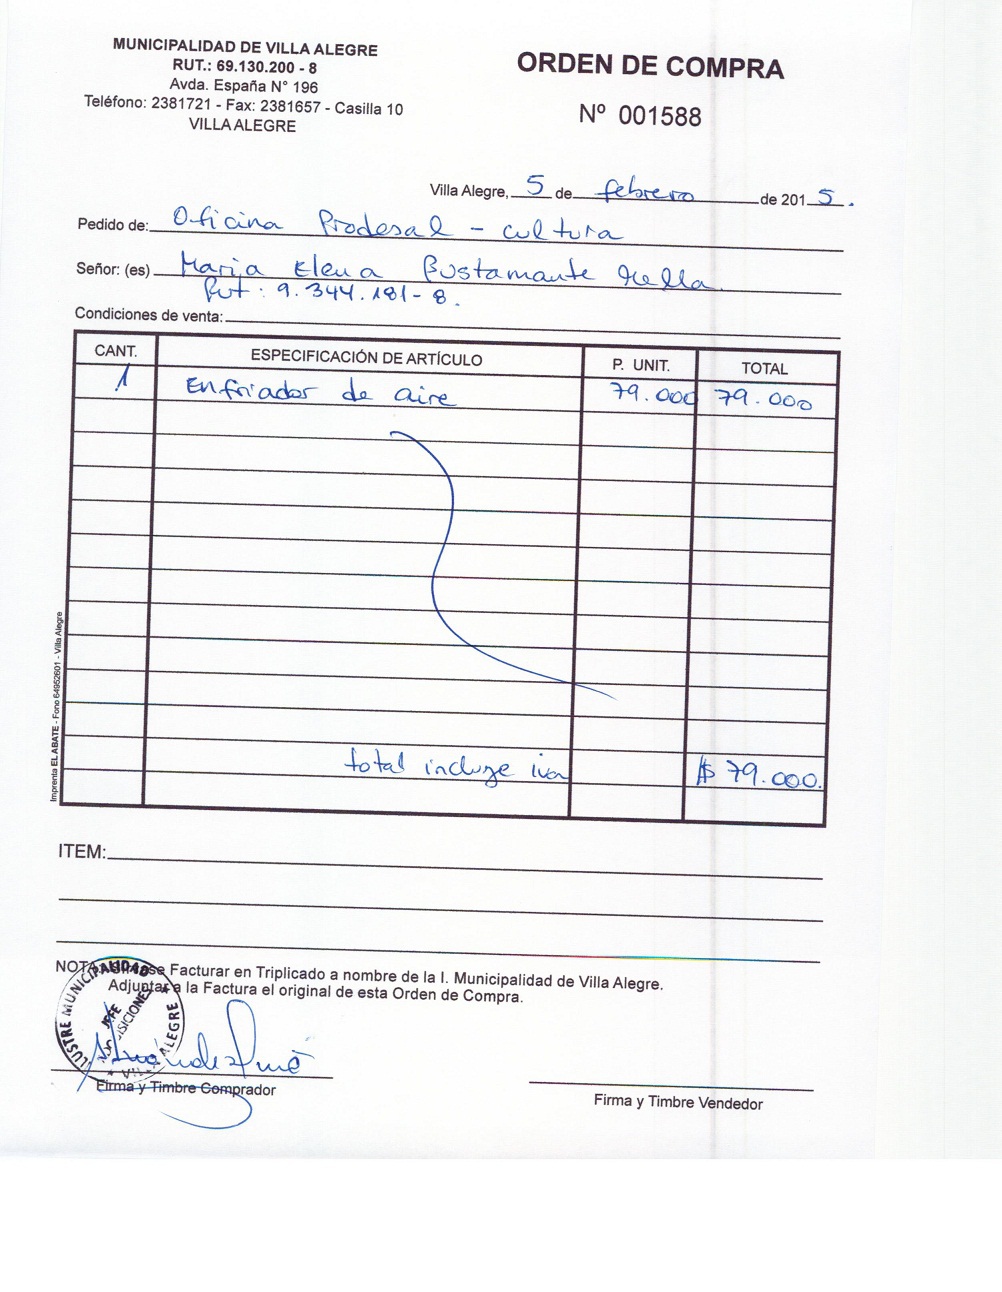 MUNICIPALIDAD DE VILLA ALEGRE
RUT.: 69.130.200 - 8
Avda. España N° 196
Teléfono: 2381721 - Fax: 2381657 - Casilla 10
VILLA ALEGRE
ORDEN DE COMPRA
Nº 001588
Villa Alegre, 5 de febrero de 2015.
Pedido de: Oficina Prodesal - cultura
Señor: (es) Maria Elena Bustamante
Rut: 9.344.181-8.
Condiciones de venta:
CANT. ESPECIFICACIÓN DE ARTÍCULO P. UNIT. TOTAL
1 Enfriador de aire 79.000 79.000
total incluye iva $ 79.000.
Imprenta ELABATE - Fono 64952601 - Villa Alegre
ITEM:
NOTA: Facturar en Triplicado a nombre de la I. Municipalidad de Villa Alegre.
Adjuntar a la Factura el original de esta Orden de Compra.
ILUSTRE MUNICIPALIDAD
JEFE
ADQUISICIONES
VILLA ALEGRE
Firma y Timbre Comprador
Firma y Timbre Vendedor